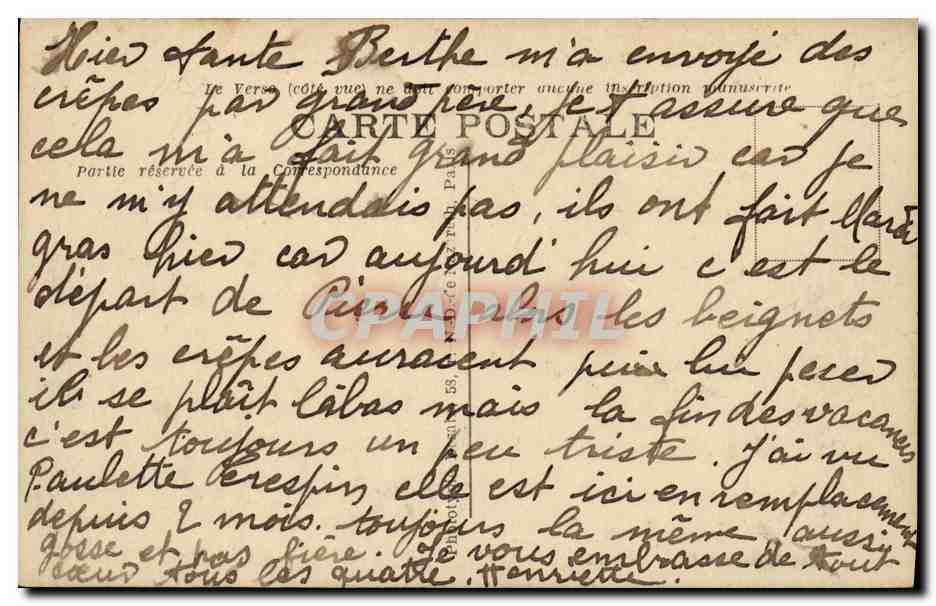 Hier tante Berthe m'a envoyé des
Le Verso (côté vue) ne doit comporter aucune inscription manuscrite
crêpes par grand père, je t'assure que
CARTE POSTALE
cela m'a fait grand plaisir car je
Partie réservée à la Correspondance
ne m'y attendais pas, ils ont fait Mardi
gras hier car aujourd'hui c'est le
départ de Pierre alors les beignets
CPAPHIL
et les crêpes auraient pu lui peser
il se plaît làbas mais la fin des vacances
c'est toujours un peu triste. J'ai vu
Paulette Crespin elle est ici en remplacement
depuis 2 mois. toujours la même aussi
gosse et pas fière. Je vous embrasse de tout
cœur tous les quatre. Henriette.